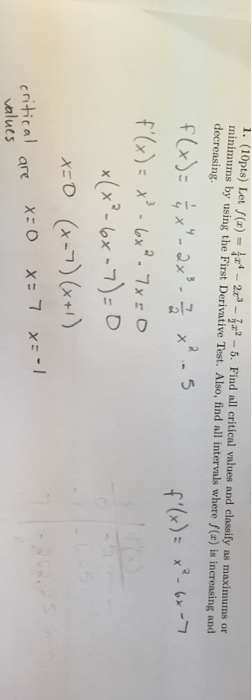 1. (10pts) Let f(x) = ¼x⁴ − 2x³ − 7/2x² − 5. Find all critical values and classify as maximums or
minimums by using the First Derivative Test. Also, find all intervals where f(x) is increasing and
decreasing.
f(x) = ¼x⁴ - 2x³ - 7/2 x² - 5
f'(x) = x² - 6x - 7
f'(x) = x³ - 6x² - 7x = 0
x(x² - 6x - 7) = 0
x=0 (x-7)(x+1)
critical are x=0 x=7 x=-1
values